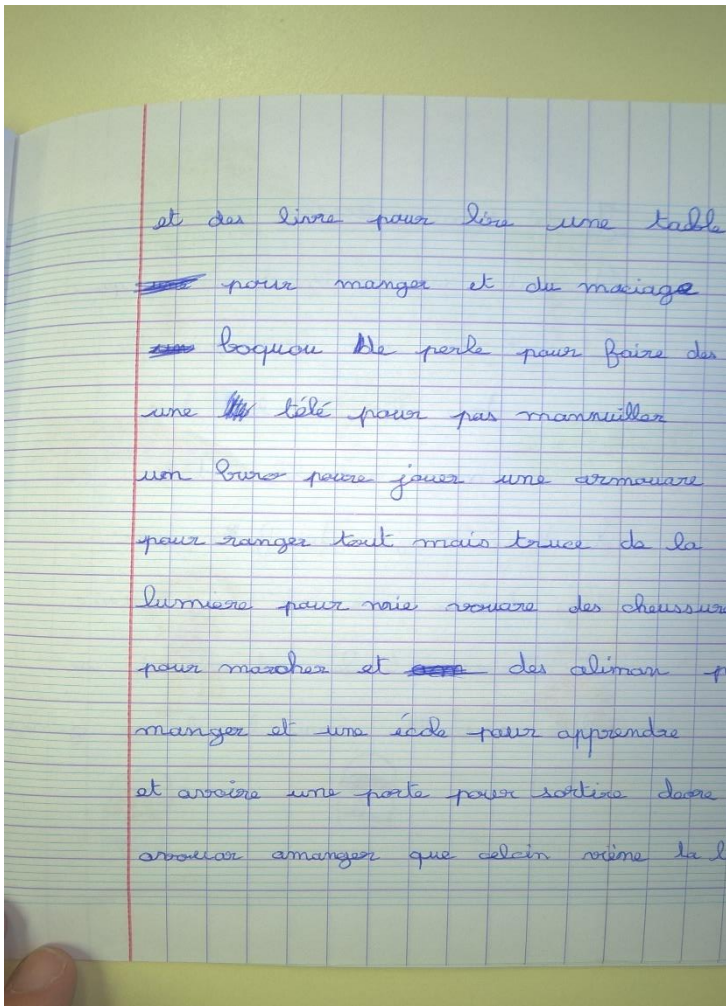 et des livre pour lire une table
pour manger et du maciage
boquou de perle pour faire des
une télé pour pas mannuiller
un buro pource jouer une armouare
pour ranger tout mais truce de la
lumiere pour voire des chaussure
pour marcher et des aliman
manger et une école pour apprendre
et avoire une porte pour sortire
avouar amanger que viène la